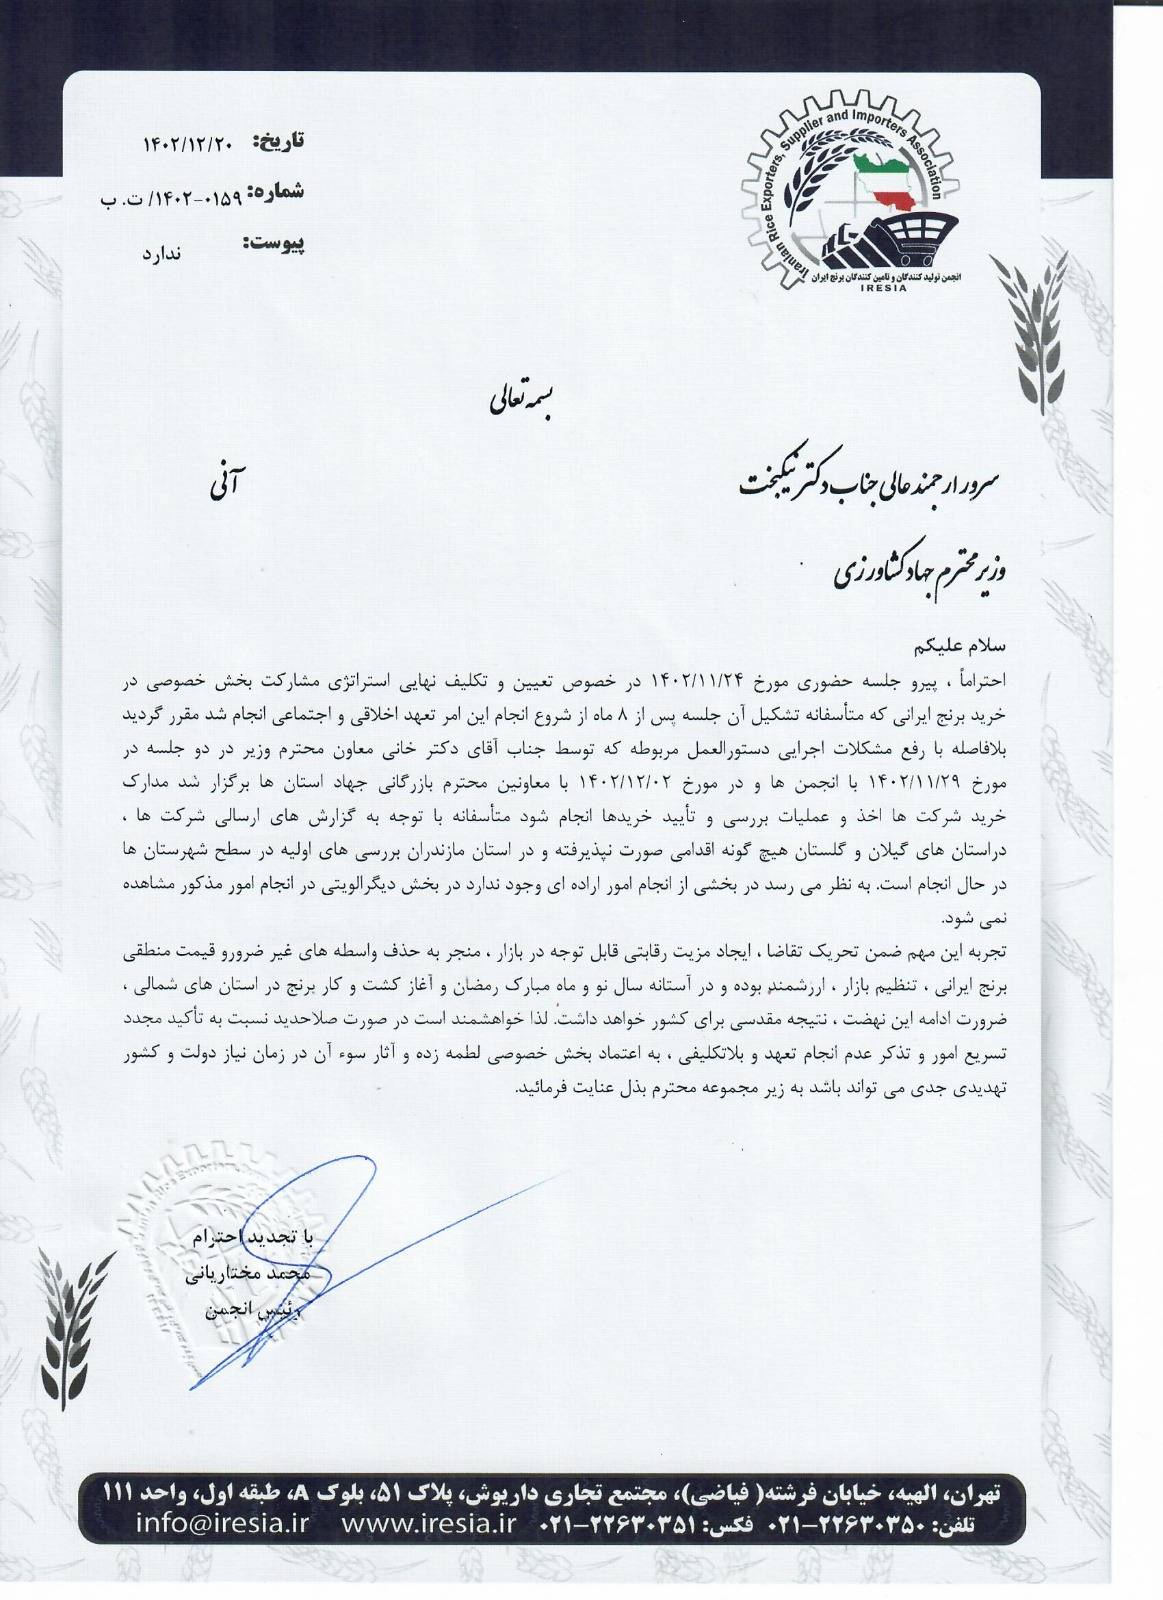 Iranian Rice Exporters, Supplier and Importers Association
انجمن تولید کنندگان و تامین کنندگان برنج ایران
IRESIA
تاریخ: ۱۴۰۲/۱۲/۲۰
شماره: ۱۴۰۲-۰۱۵۹/ ت. ب
پیوست: ندارد
بسمه تعالی
سرور ارجمند عالی جناب دکتر نیکبخت
آنی
وزیر محترم جهاد کشاورزی
سلام علیکم
احتراماً ، پیرو جلسه حضوری مورخ ۱۴۰۲/۱۱/۲۴ در خصوص تعیین و تکلیف نهایی استراتژی مشارکت بخش خصوصی در
خرید برنج ایرانی که متأسفانه تشکیل آن جلسه پس از ۸ ماه از شروع انجام این امر تعهد اخلاقی و اجتماعی انجام شد مقرر گردید
بلافاصله با رفع مشکلات اجرایی دستورالعمل مربوطه که توسط جناب آقای دکتر خانی معاون محترم وزیر در دو جلسه در
مورخ ۱۴۰۲/۱۱/۲۹ با انجمن ها و در مورخ ۱۴۰۲/۱۲/۰۲ با معاونین محترم بازرگانی جهاد استان ها برگزار شد مدارک
خرید شرکت ها اخذ و عملیات بررسی و تأیید خریدها انجام شود متأسفانه با توجه به گزارش های ارسالی شرکت ها ،
دراستان های گیلان و گلستان هیچ گونه اقدامی صورت نپذیرفته و در استان مازندران بررسی های اولیه در سطح شهرستان ها
در حال انجام است. به نظر می رسد در بخشی از انجام امور اراده ای وجود ندارد در بخش دیگرالویتی در انجام امور مذکور مشاهده
نمی شود.
تجربه این مهم ضمن تحریک تقاضا ، ایجاد مزیت رقابتی قابل توجه در بازار ، منجر به حذف واسطه های غیر ضرورو قیمت منطقی
برنج ایرانی ، تنظیم بازار ، ارزشمند بوده و در آستانه سال نو و ماه مبارک رمضان و آغاز کشت و کار برنج در استان های شمالی ،
ضرورت ادامه این نهضت ، نتیجه مقدسی برای کشور خواهد داشت. لذا خواهشمند است در صورت صلاحدید نسبت به تأکید مجدد
تسریع امور و تذکر عدم انجام تعهد و بلاتکلیفی ، به اعتماد بخش خصوصی لطمه زده و آثار سوء آن در زمان نیاز دولت و کشور
تهدیدی جدی می تواند باشد به زیر مجموعه محترم بذل عنایت فرمائید.
با تجدید احترام
محمد مختاریانی
رئیس انجمن
تهران، الهیه، خیابان فرشته( فیاضی)، مجتمع تجاری داریوش، پلاک ۵۱، بلوک A، طبقه اول، واحد ۱۱۱
تلفن: ۰۲۱-۲۲۶۳۰۳۵۰ فکس: ۰۲۱-۲۲۶۳۰۳۵۱ www.iresia.ir info@iresia.ir